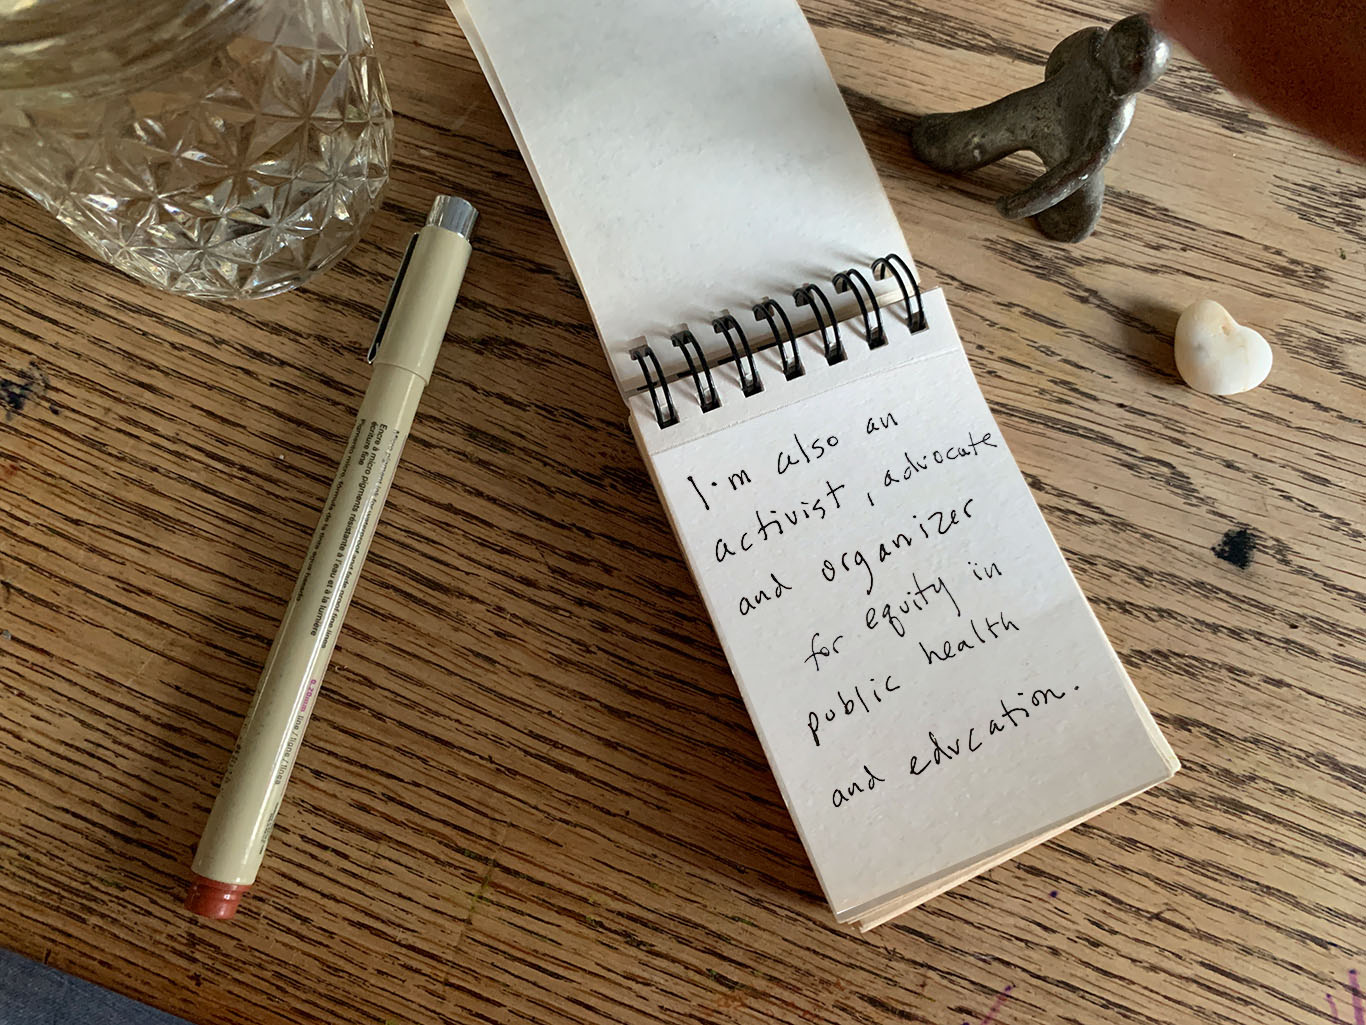 I'm also an
activist, advocate
and organizer
for equity in
public health
and education.
Encre à micro pigments résistante à l'eau et à la lumière
écriture fine
0.20mm line / ligne / línea